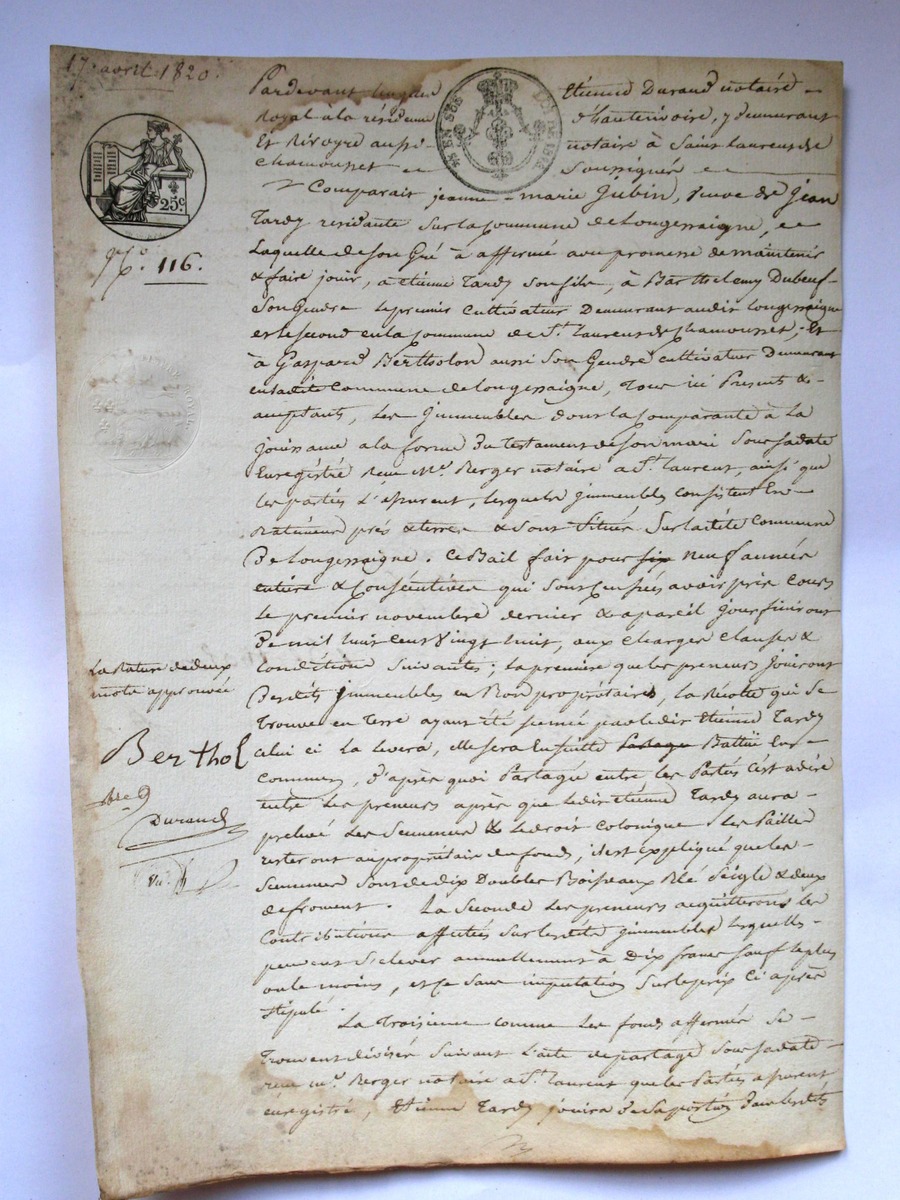 17 avril 1820.
Pardevant Etienne Durand notaire
Royal à la résidence d'hauterivoire, y demeurant
Et Rivoyre aussi notaire à Saint Laurent de
chamousset Soussignés
25c.
N.o 116.
Comparait jeanne-marie Jubin, veuve de Jean
Tardy résidante sur la commune de Longessaigne,
Laquelle de son Gré à affermé avec promesse de maintenir
& faire jouir, à etienne Tardy son fils, à Barthelemy Dubeuf
Son Gendre le premier cultivateur Demeurant audit Longessaigne
et le second en la commune de St. Laurent de Chamousset, Et
à Gaspard Bertholon aussi son Gendre cultivateur Demeurant
en ladite Commune de Longessaigne, Tous ici Presents &
acceptants, Les jmmeubles dont la comparante à La
jouissance a la forme du testament de son mari Sous sa date
Enregistré recu Me. Berger notaire a St. Laurent, ainsi que
les parties L'assurent, lesquels jmmeubles consistent En
Batiments prés & terres & sont Situés Sur ladite Commune
De Longessaigne. Ce Bail fait pour six neuf années
entière & Consécutives qui sont Censées avoir pris cours
Le premier novembre dernier & a pareil jour finiront
De mil huit cent Vingt huit, aux charges clauses &
conditions Suivantes; La premiere que les preneurs jouiront
Desdits jmmeubles en Bons proprietaires, La Récolte qui Se
Trouve en Terre ayant été semée par ledit Etienne Tardy
Celui ci La Levera, elle sera Ensuite Battüe En
commun, D'après quoi Partagée entre les Parties C'est a dire
entre les preneurs après que ledit etienne Tardy aura
prelevé Les Semences & Le droit colonique Les Pailles
resteront au propriétaire du fonds, il est expliqué que les
Semences sont de dix Doubles Boisseaux Blé Seigle & deux
de froment. La Seconde Les preneurs acquitteront les
Contributions affectées Sur lesdits jmmeubles Lesquelles
peuvent S'elever annuellement à Dix francs sauf le plus
ou le moins, et ce sans imputation sur le prix ci après
stipulé.
La Troisieme comme Les fonds affermés Se
Trouvent divisés suivant L'acte de partage Sous sa date
recu me. Berger notaire a St. Laurent que les Parties assurent
enregistré, Etienne Tardy jouira de Sa portion Dans lesdits
La Rature de deux
mots approuvée
Berthol
Durand